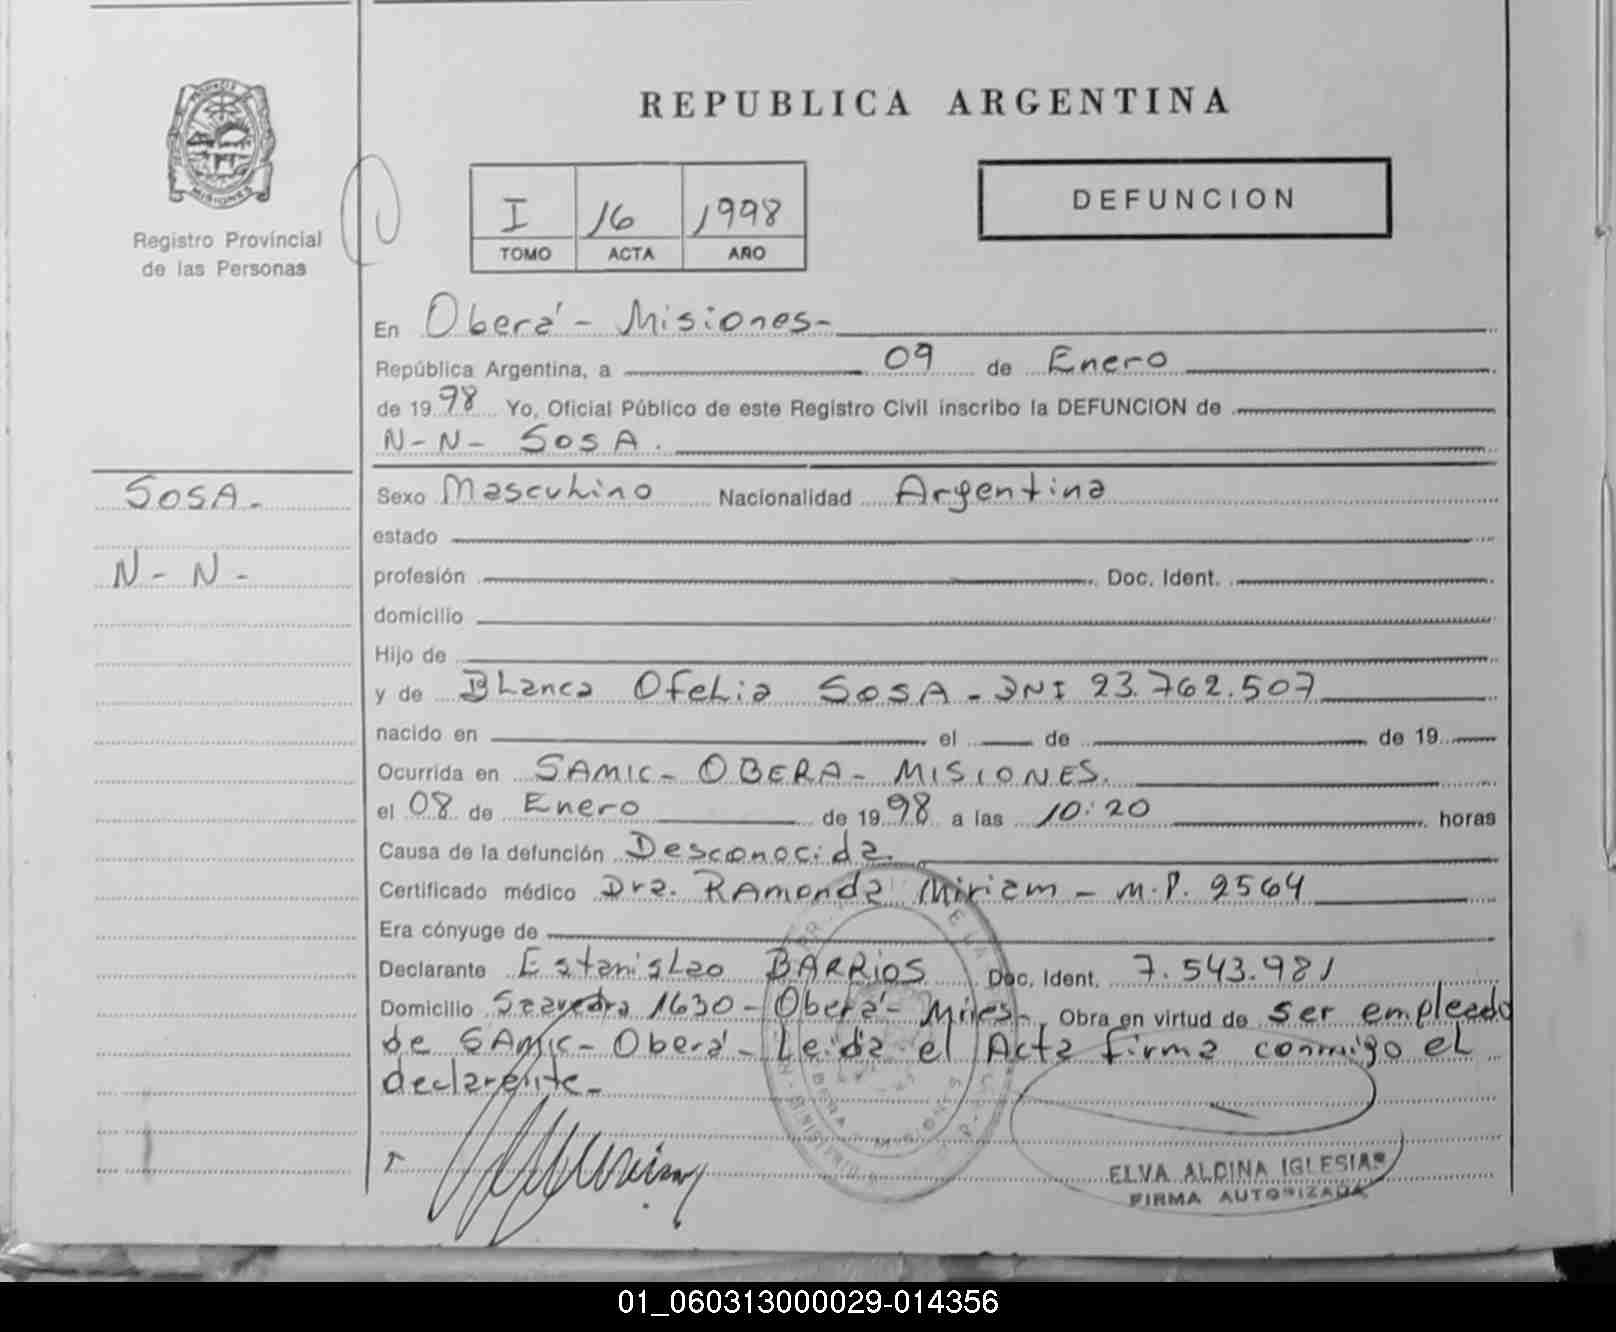 REPUBLICA ARGENTINA
MISIONES
Registro Provincial
de las Personas
I 16 1998
TOMO ACTA AÑO
DEFUNCION
En Oberá - Misiones-
República Argentina, a 09 de Enero
de 1998 Yo, Oficial Público de este Registro Civil inscribo la DEFUNCION de
N-N- SOSA.
SOSA-
N-N-
Sexo Masculino Nacionalidad Argentina
estado
profesión Doc. Ident.
domicilio
Hijo de
y de Blanca Ofelia SOSA - DNI 23.762.507
nacido en el de de 19
Ocurrida en SAMIC- OBERA- MISIONES.
el 08 de Enero de 1998 a las 10:20 horas
Causa de la defunción Desconocida.
Certificado médico Dra. RAmonda Miriam - M.P. 2564
Era cónyuge de
Declarante Estanislao BARRIOS Doc. Ident. 7.543.981
Domicilio Saavedra 1630 - Oberá- Mnes- Obra en virtud de ser empleado
de SAmic- Oberá- Leída el Acta firma conmigo el
declarante-
ELVA ALCINA IGLESIAS
FIRMA AUTORIZADA
01_060313000029-014356